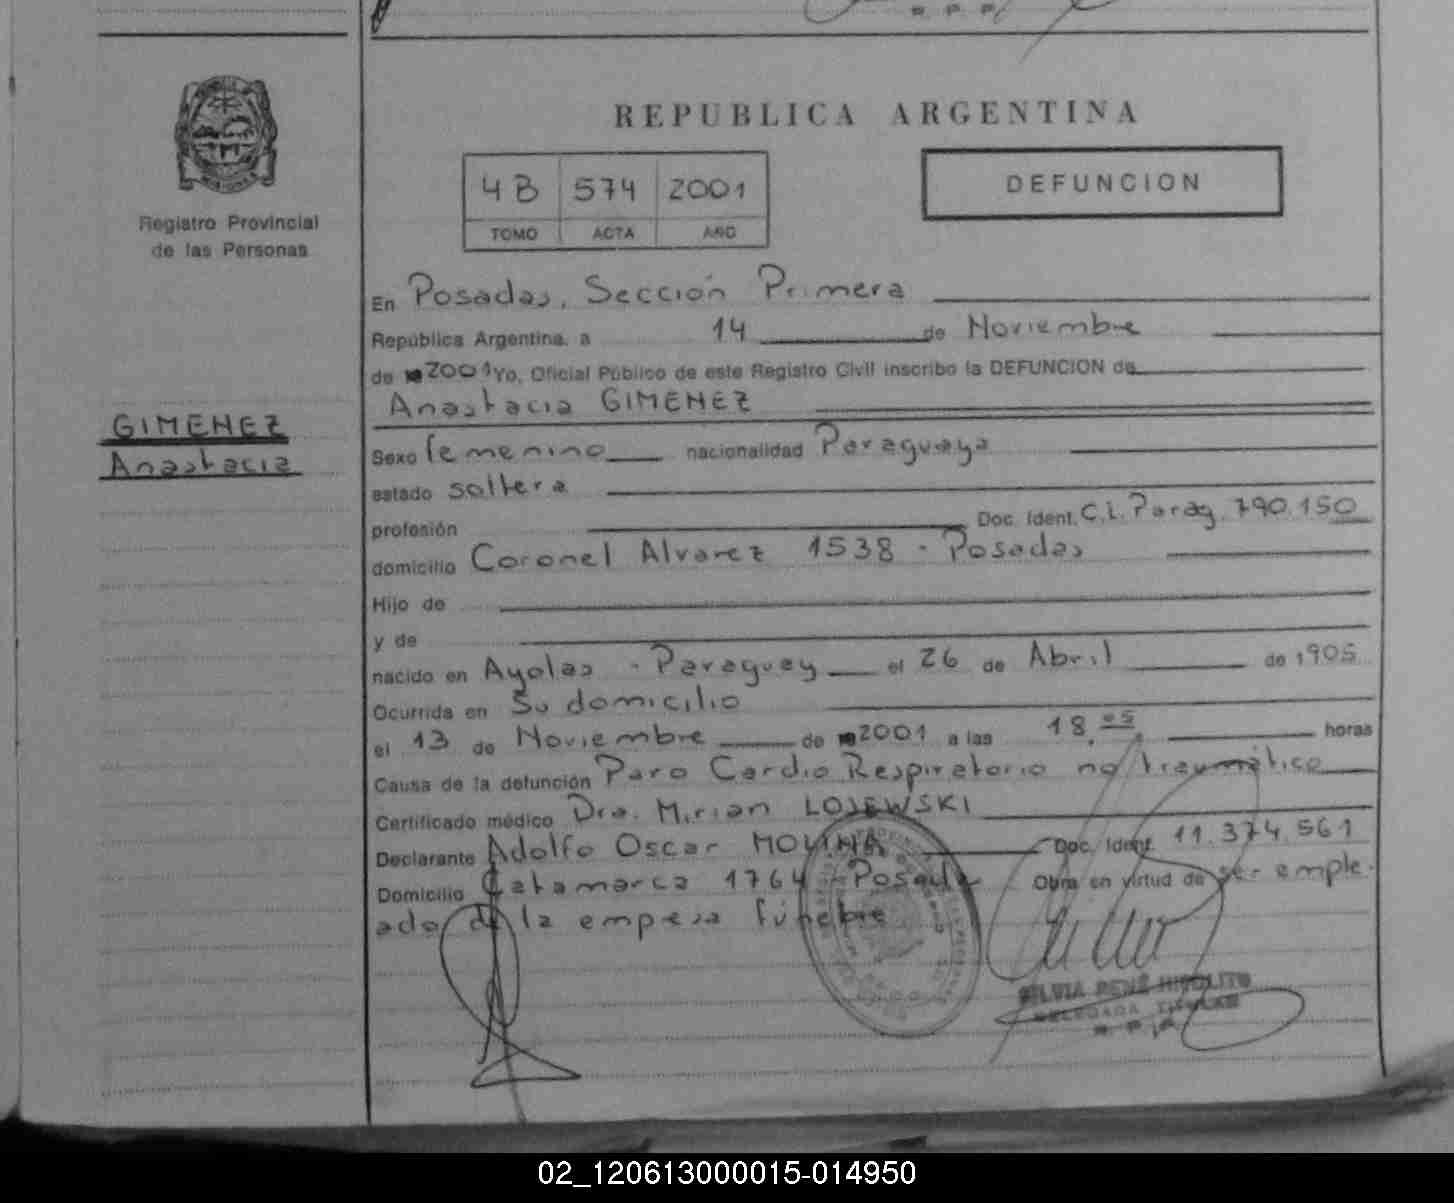 R. P. P.
REPUBLICA ARGENTINA
4B 574 2001
TOMO ACTA AÑO
DEFUNCION
Registro Provincial
de las Personas
En Posadas, Sección Primera
República Argentina, a 14 de Noviembre
de 2001 Yo, Oficial Público de este Registro Civil inscribo la DEFUNCION de
Anastacia GIMENEZ
GIMENEZ
Anastacia
Sexo femenino nacionalidad Paraguaya
estado soltera
profesión Doc. Ident. C.I. Parag. 790.150
domicilio Coronel Alvarez 1538 - Posadas
Hijo de
y de
nacido en Ayolas - Paraguay el 26 de Abril de 1905
Ocurrida en Su domicilio
el 13 de Noviembre de 2001 a las 18.05 horas
Causa de la defunción Paro Cardio Respiratorio no traumático
Certificado médico Dra. Mirian LOJEWSKI
Declarante Adolfo Oscar MOLINA Doc. Ident. 11.374.561
Domicilio Catamarca 1764 - Posadas Obra en virtud de ser emple-
ado de la empresa fúnebre
SILVIA RENÉ HIPOLITO
DELEGADA TITULAR
R. P. P.
02_120613000015-014950